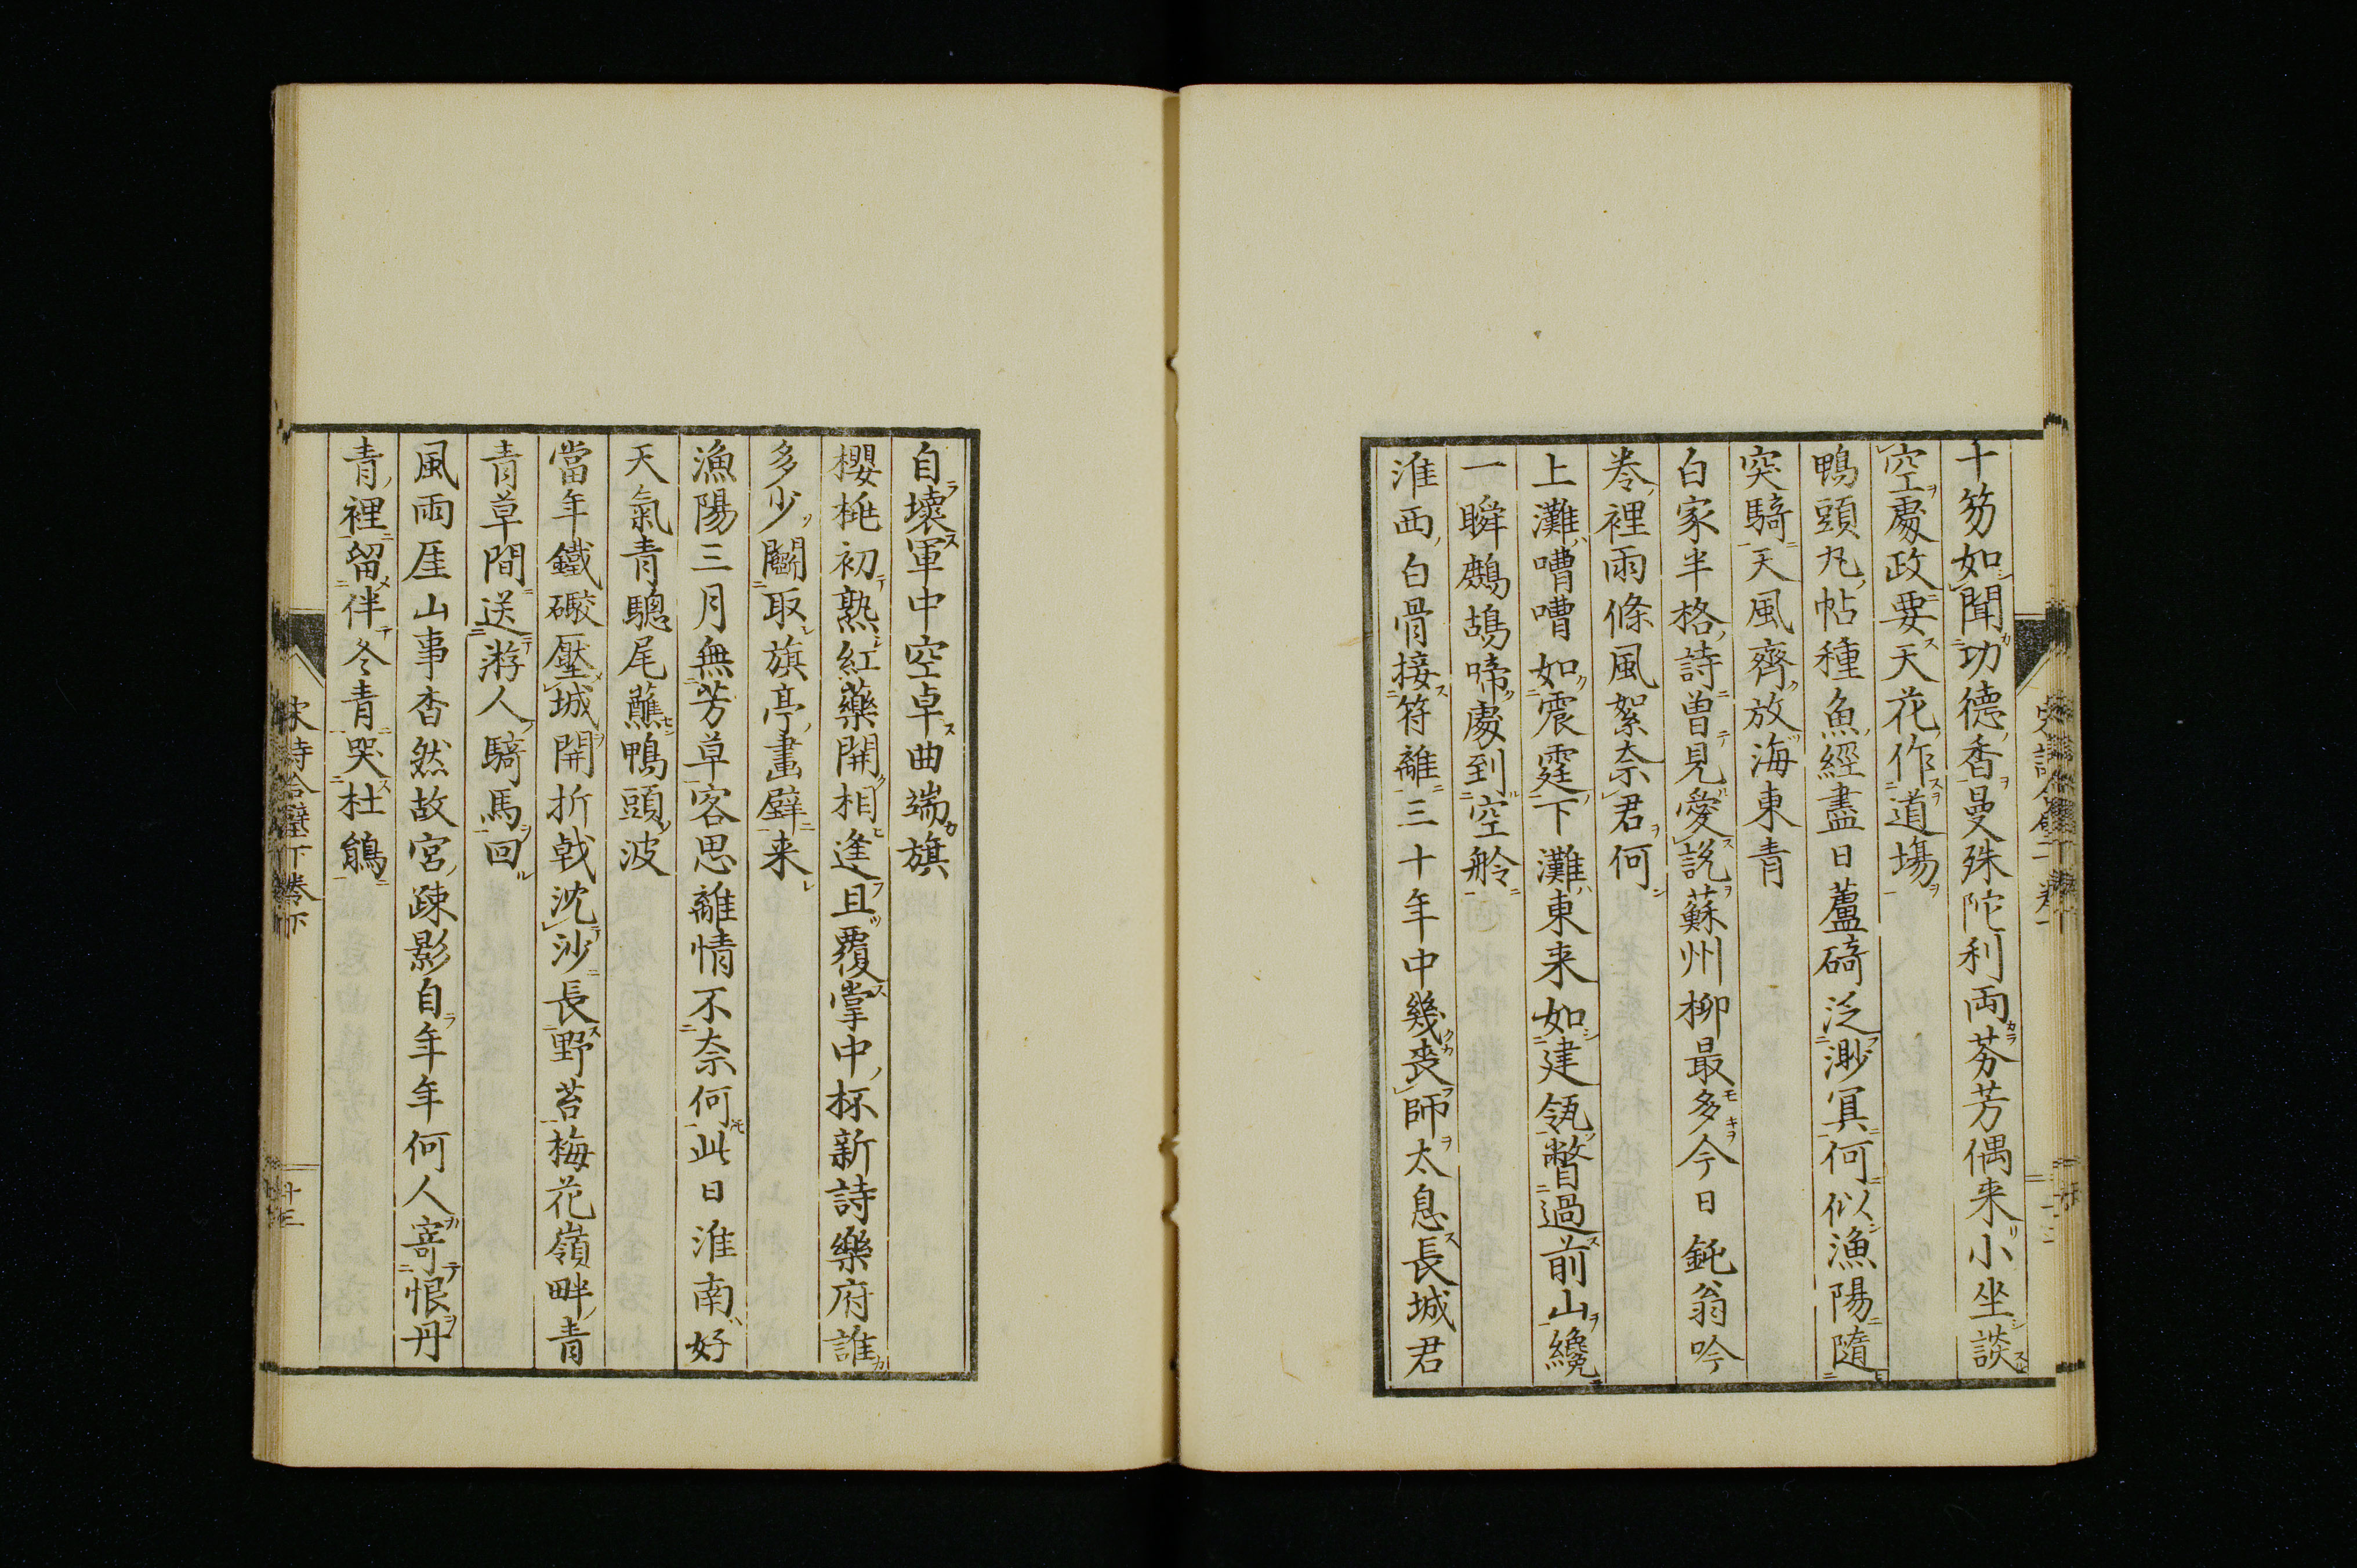 十笏如聞功德香曼殊陀利両芬芳偶来小坐談
空處政要天花作道場
鴨頭丸帖種魚經盡日蘆碕泛渺冥何似漁陽隨
突騎天風齊放海東青
白家半格詩曽見愛說蘇州柳最多今日鈍翁吟
卷裡雨條風絮奈君何
上灘嘈嘈如震霆下灘東来如建瓴瞥過前山纔
一瞬鷓鴣啼處到空舲
淮西白骨接符離三十年中幾喪師太息長城君
自壊軍中空卓曲端旗
櫻桃初熟紅藥開相逢且覆掌中杯新詩樂府誰
多少鬭取旗亭畫壁来
漁陽三月無芳草客思離情不奈何此日淮南好
天氣青驄尾蘸鴨頭波
當年鐵礮壓城開折戟沈沙長野苔梅花嶺畔青
青草間送游人騎馬回
風雨厓山事杳然故宮疎影自年年何人寄恨丹
青裡留伴冬青哭杜鵑
宋詩合璧下卷下
十三